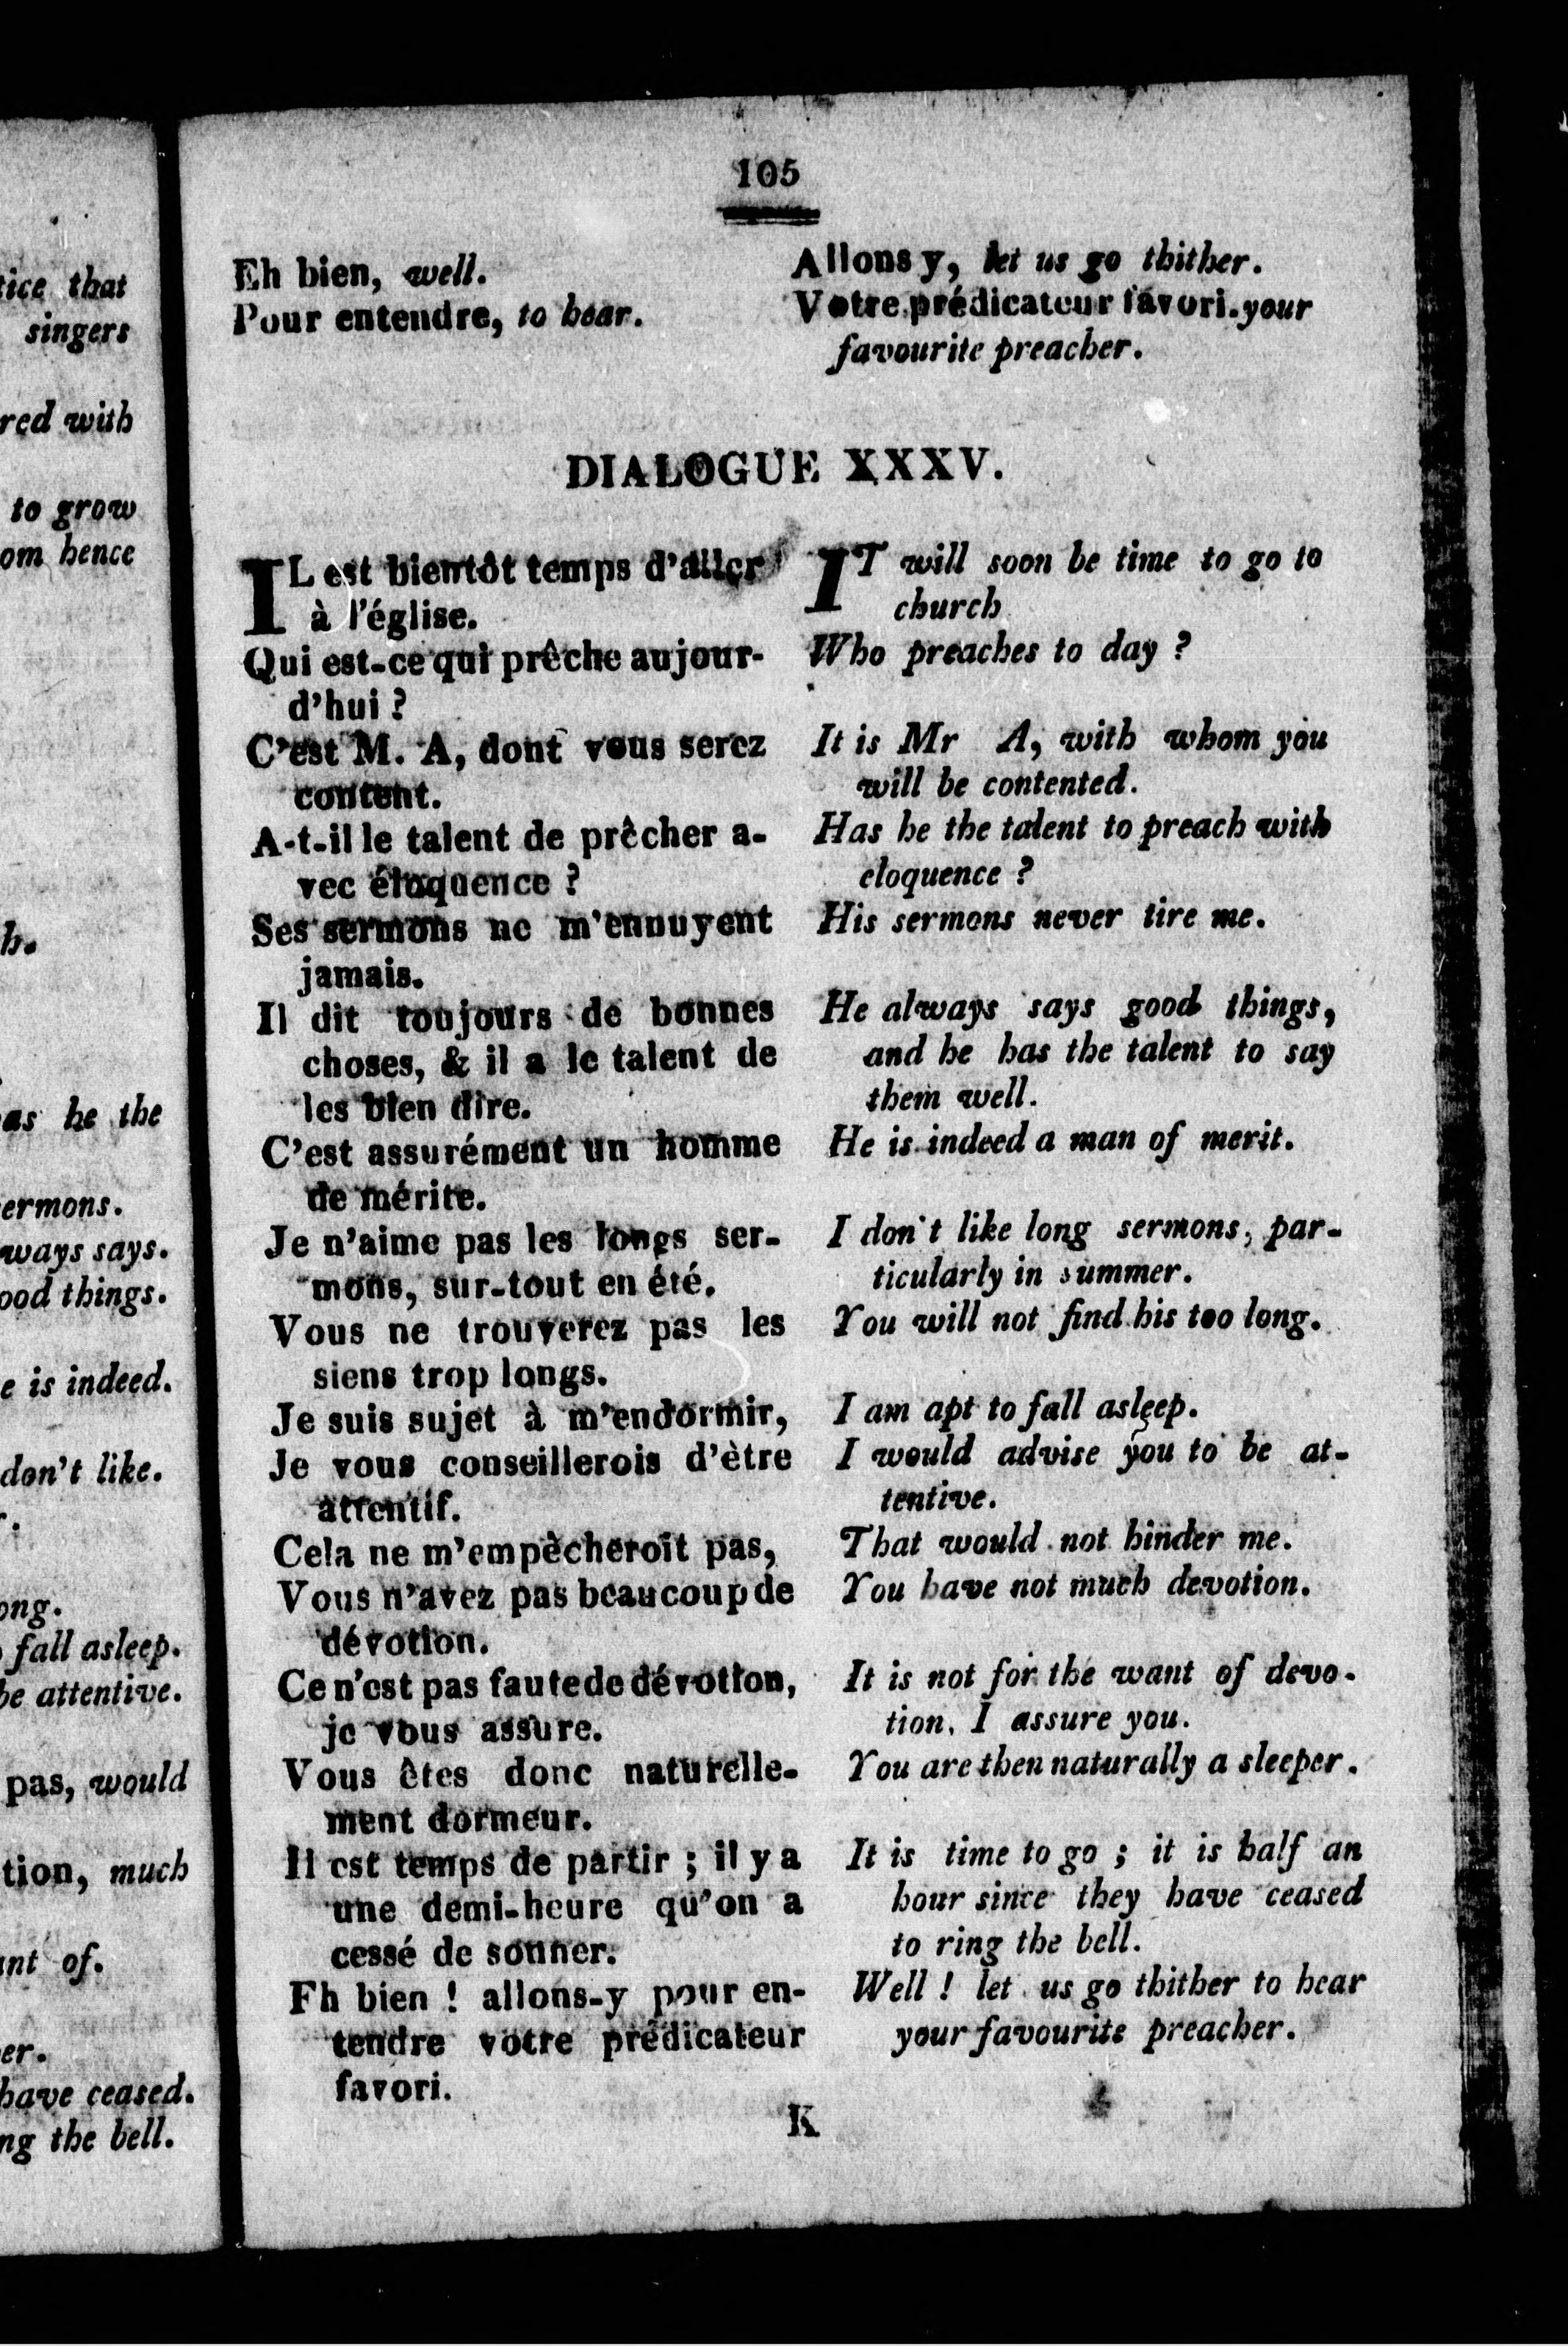 105
Eh bien, well.
Pour entendre, to hear.
Allons y, let us go thither.
Votre prédicateur favori. your
favourite preacher.
DIALOGUE XXXV.
IL est bientôt temps d'aller
à l'église.
Qui est-ce qui prêche aujour-
d'hui ?
C'est M. A, dont vous serez
content.
A-t-il le talent de prêcher a-
vec éloquence ?
Ses sermons ne m'ennuyent
jamais.
Il dit toujours de bonnes
choses, & il a le talent de
les bien dire.
C'est assurément un homme
de mérite.
Je n'aime pas les longs ser-
mons, sur-tout en été.
Vous ne trouverez pas les
siens trop longs.
Je suis sujet à m'endormir,
Je vous conseillerois d'ètre
attentif.
Cela ne m'empècheroit pas,
Vous n'avez pas beaucoup de
dévotion.
Ce n'est pas faute de dévotion,
je vous assure.
Vous êtes donc naturelle-
ment dormeur.
Il est temps de partir ; il y a
une demi-heure qu'on a
cessé de sonner.
Fh bien ! allons-y pour en-
tendre votre prédicateur
favori.
IT will soon be time to go to
church
Who preaches to day ?
It is Mr A, with whom you
will be contented.
Has he the talent to preach with
eloquence ?
His sermons never tire me.
He always says good things,
and he has the talent to say
them well.
He is indeed a man of merit.
I don't like long sermons, par-
ticularly in summer.
You will not find his too long.
I am apt to fall asleep.
I would advise you to be at-
tentive.
That would not hinder me.
You have not much devotion.
It is not for the want of devo-
tion, I assure you.
You are then naturally a sleeper.
It is time to go ; it is half an
hour since they have ceased
to ring the bell.
Well ! let us go thither to hear
your favourite preacher.
K
that
singers
with
to grow
hence
he the
says.
things.
is indeed.
don't like.
fall asleep.
attentive.
pas, would
much
of.
have ceased.
the bell.